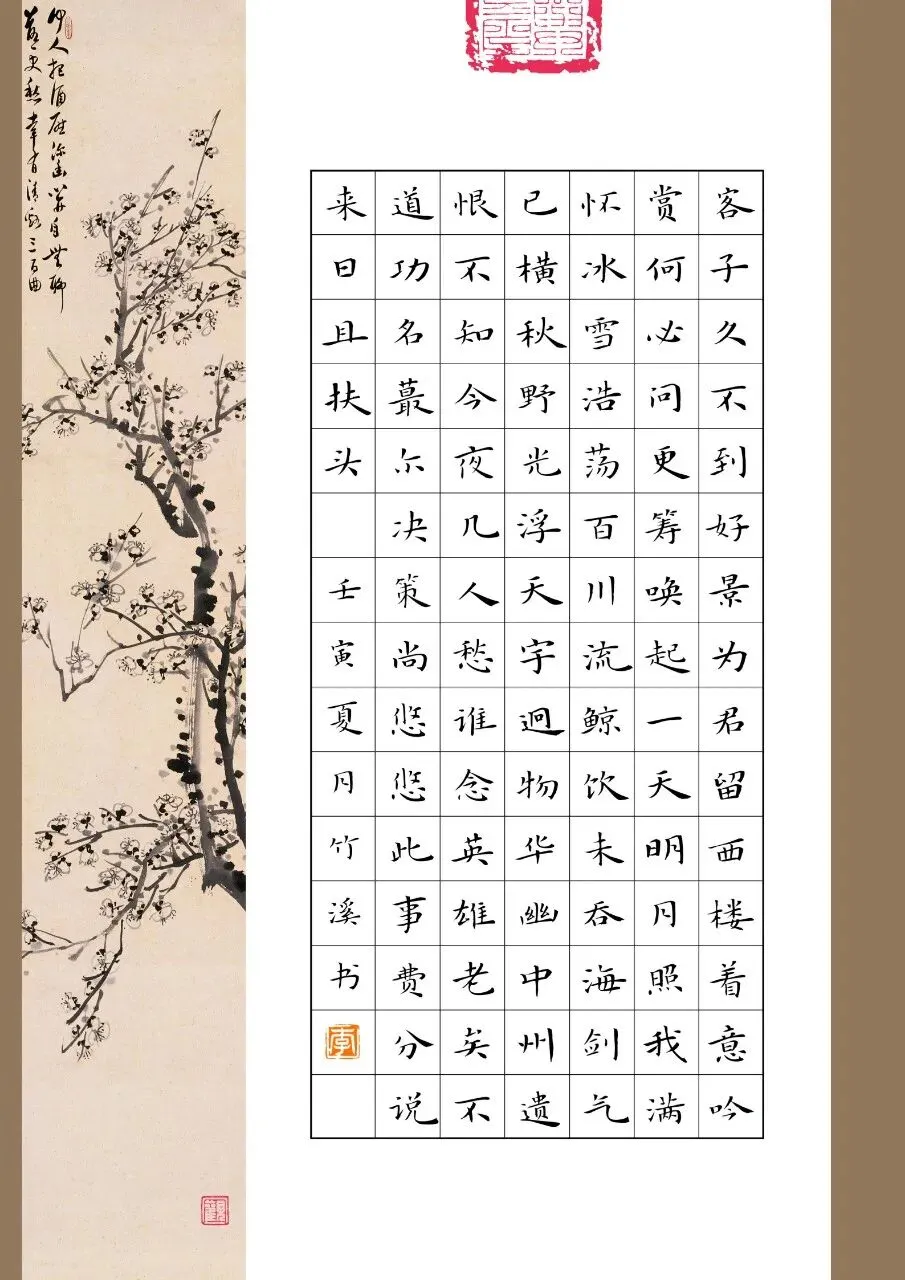 客子久不到好景为君留西楼着意吟
赏何必问更筹唤起一天明月照我满
怀冰雪浩荡百川流鲸饮未吞海剑气
已横秋野光浮天宇迥物华幽中州遗
恨不知今夜几人愁谁念英雄老矣不
道功名蕞尔决策尚悠悠此事费分说
来日且扶头 壬寅夏月竹溪书
李
何人把酒慰深幽開自無聊
落更愁幸有清溪三百曲